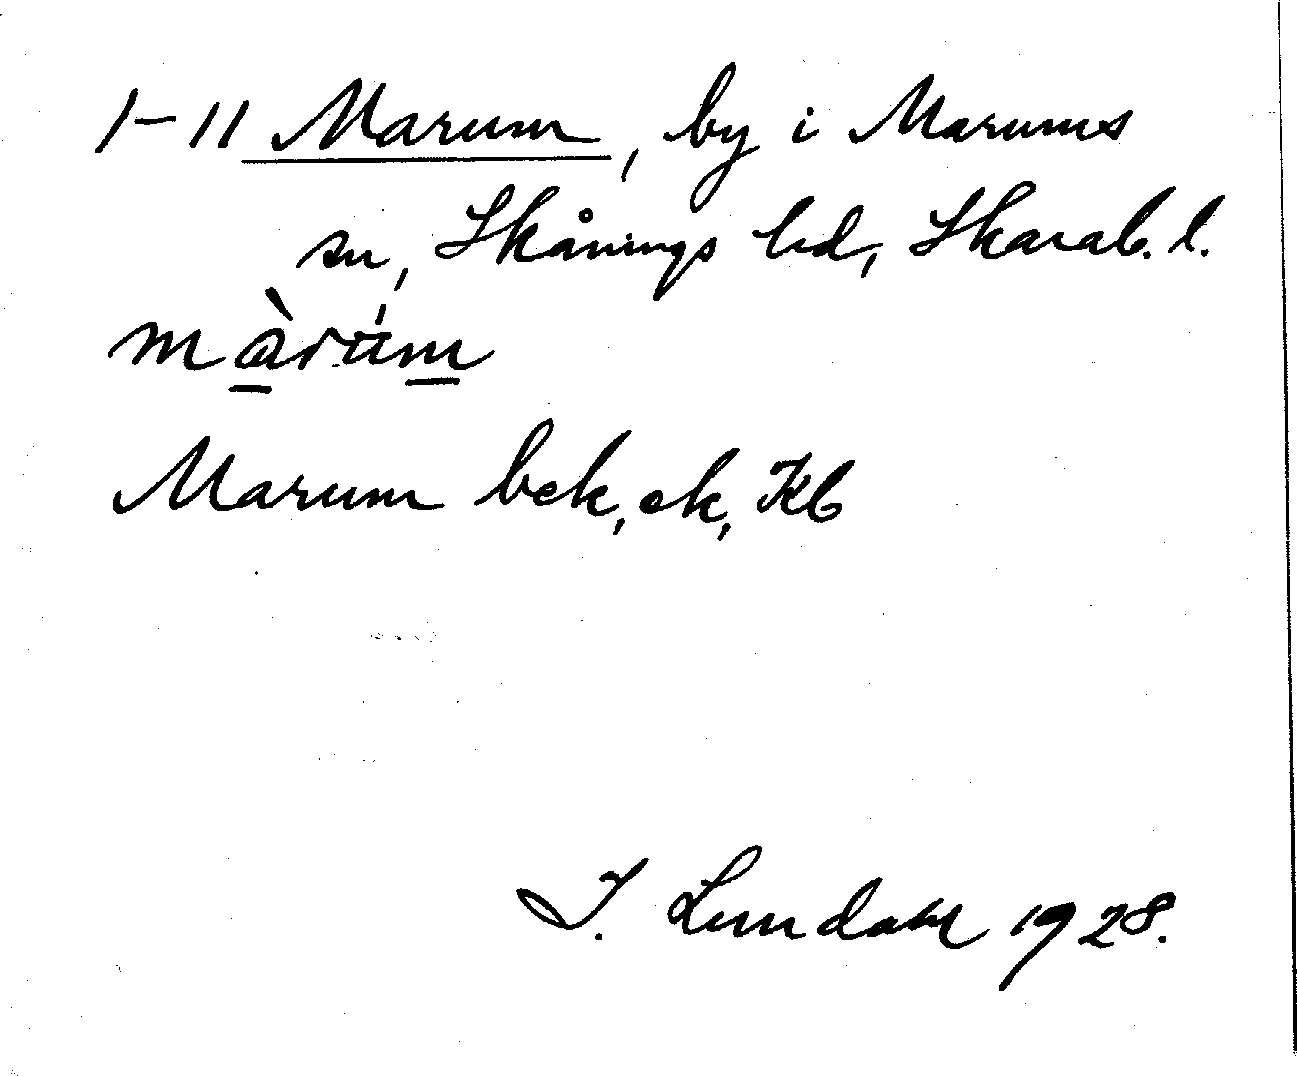 1-11 Marum, by i Marums
sn, Skånings hd, Skarab. l.
màrùm
Marum bek, ek, Kb
I. Lundahl 1928.